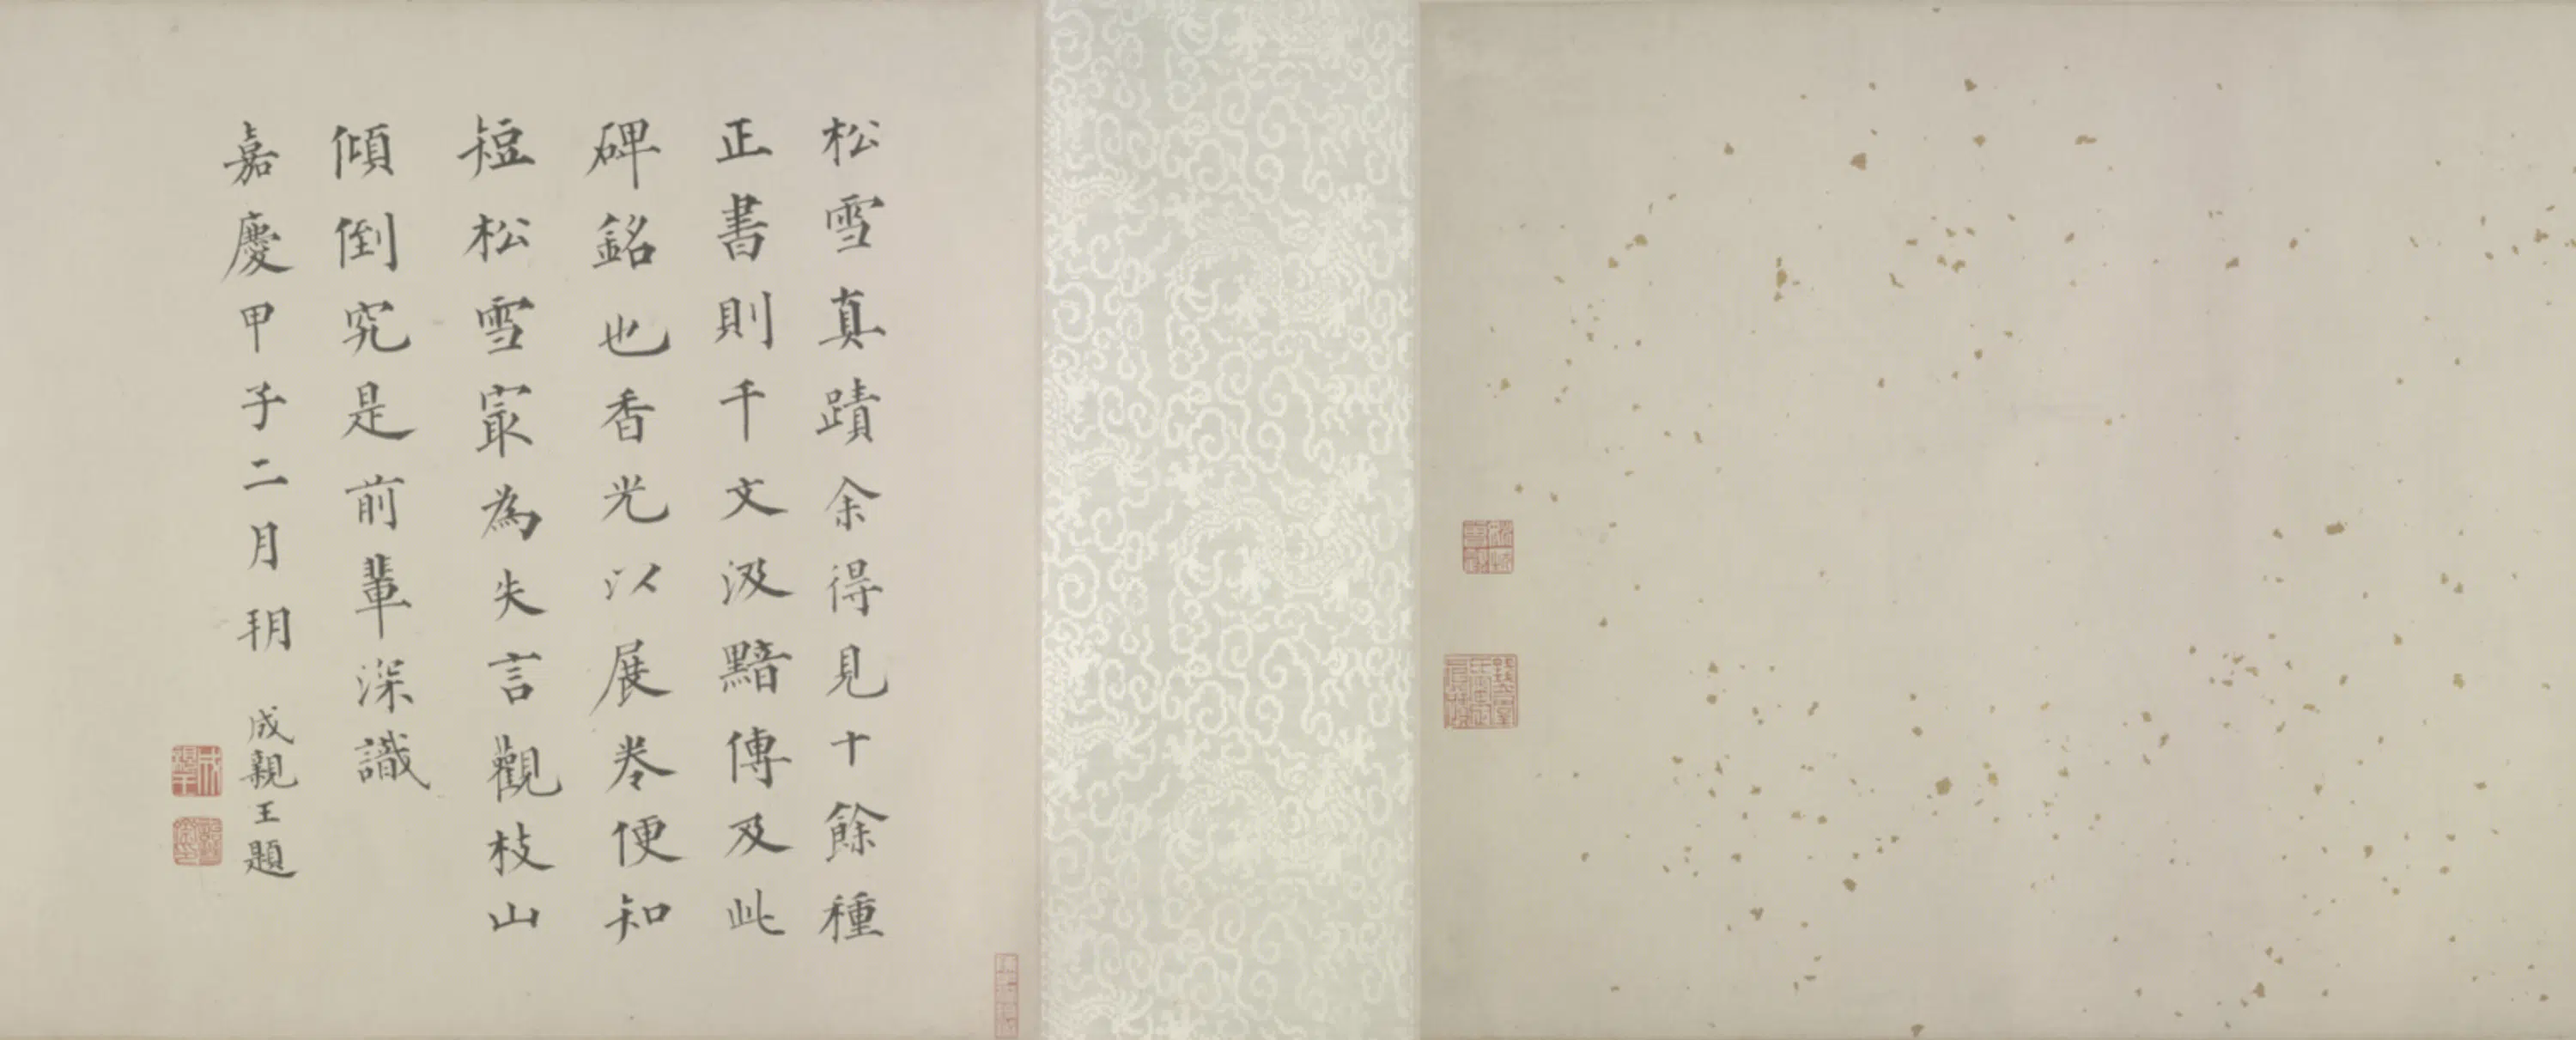 松雪真蹟余得見十餘種
正書則千文汲黯傳及此
碑銘也香光以展卷便知
短松雪冣為失言觀枝山
傾倒究是前輩深識
嘉慶甲子二月朔 成親王題
成親王